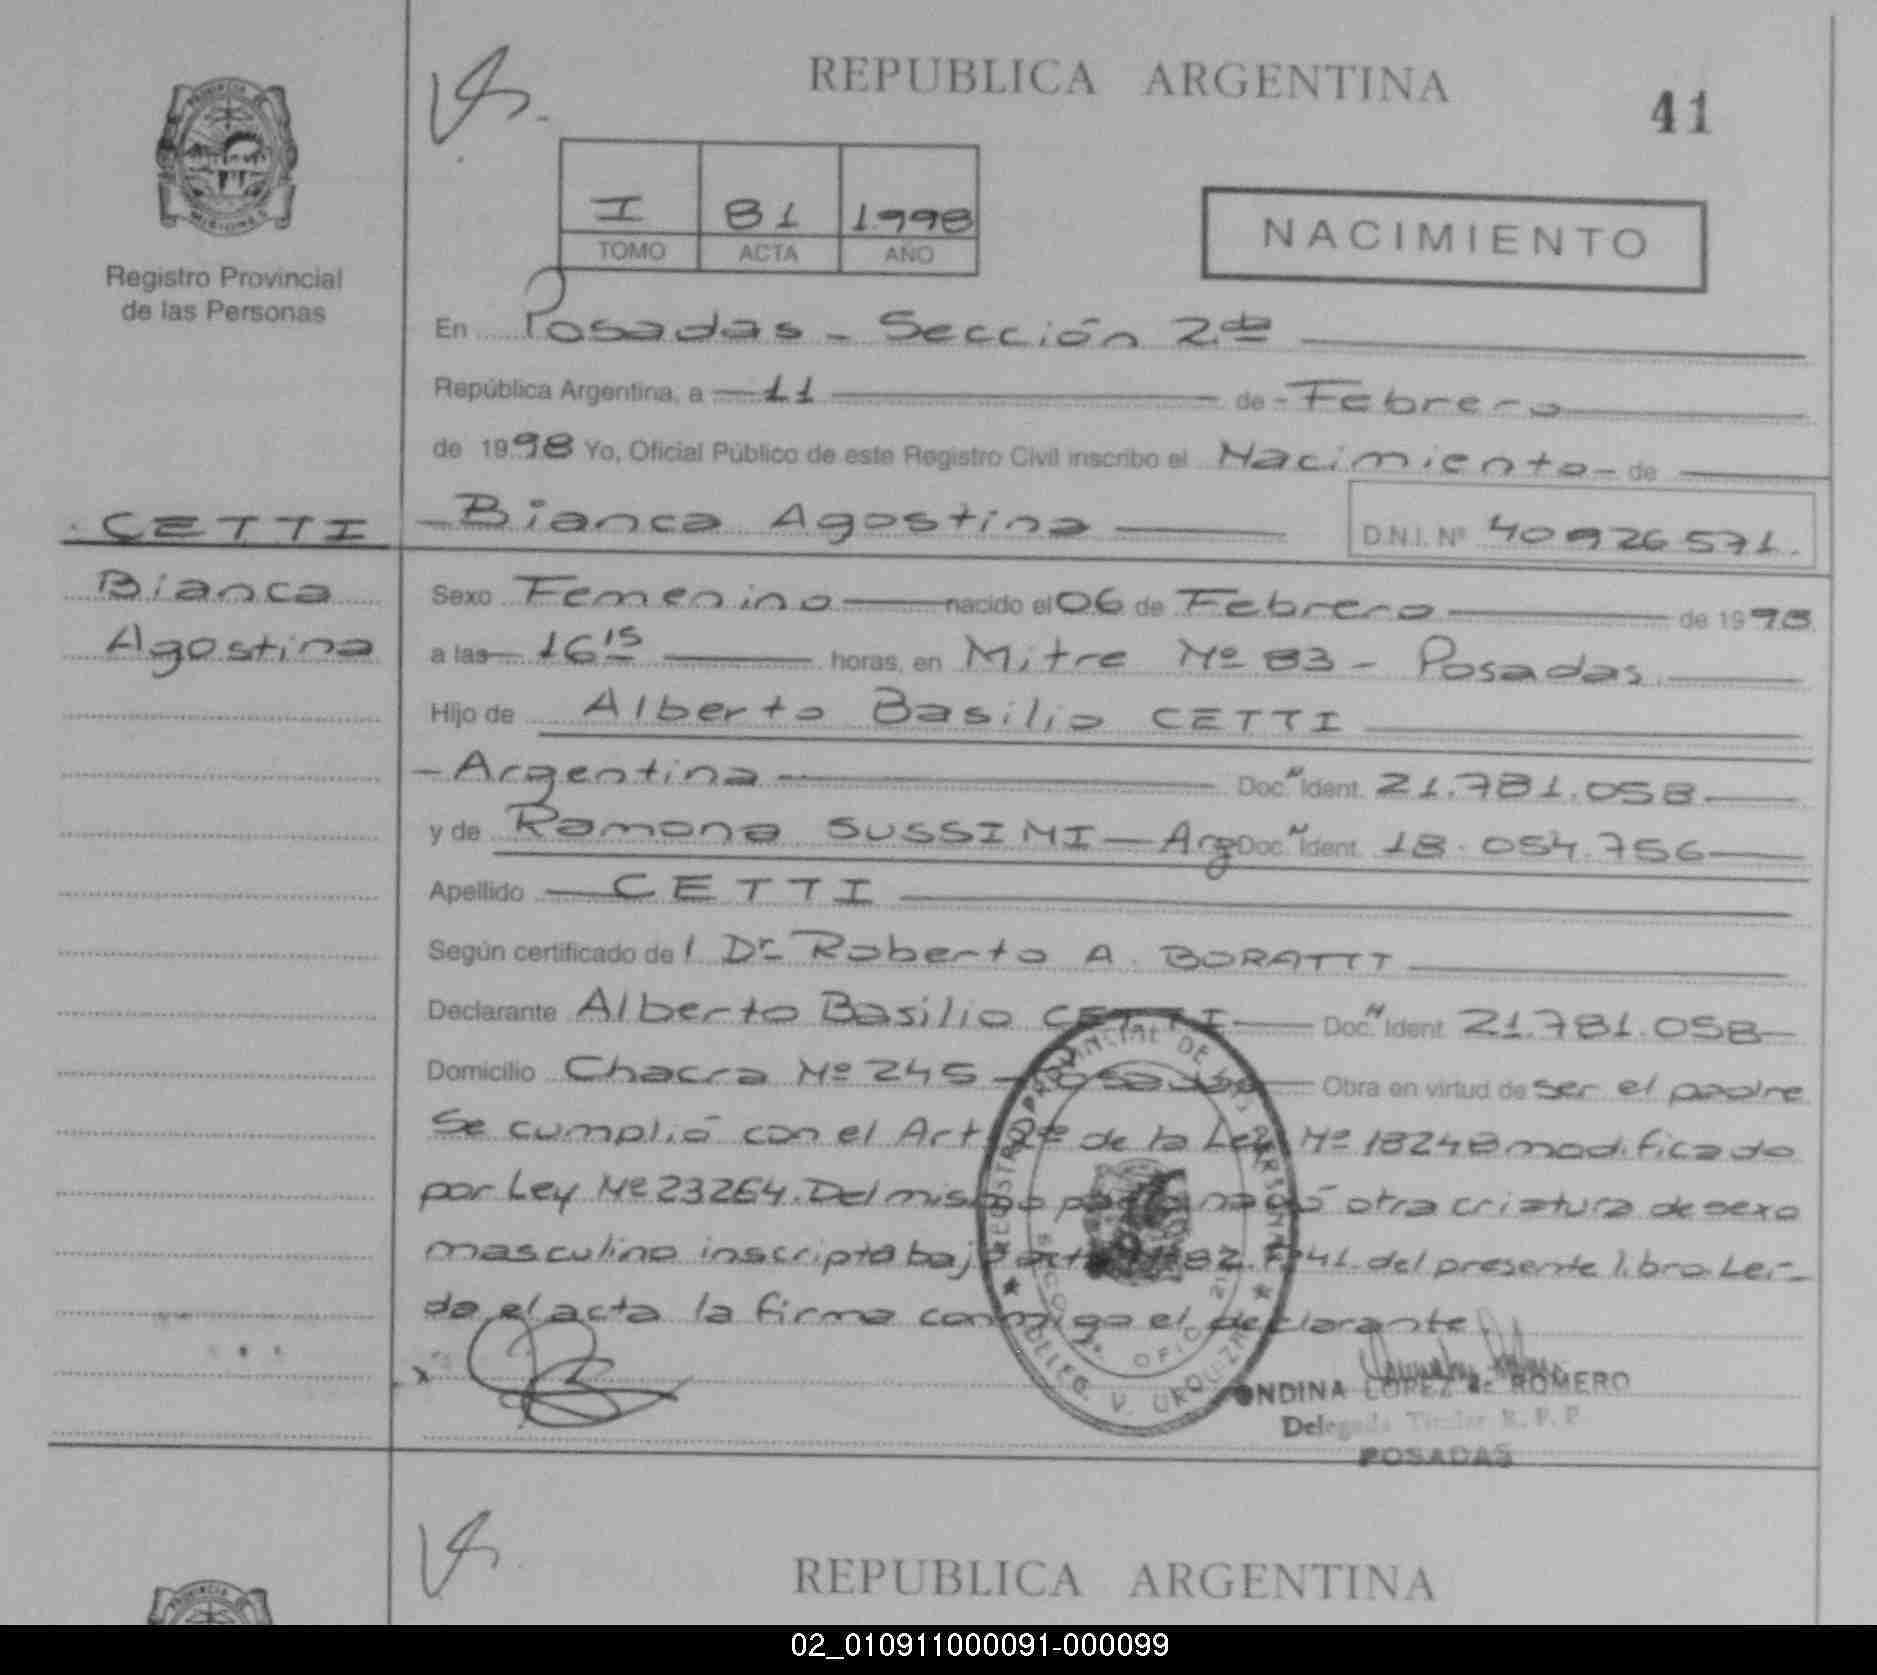 REPUBLICA ARGENTINA
41
PROVINCIA DE
MISIONES
Registro Provincial
de las Personas
I 81 1998
TOMO ACTA AÑO
NACIMIENTO
En Posadas - Sección 2da
República Argentina, a 11 de Febrero
de 1998 Yo, Oficial Público de este Registro Civil inscribo el Nacimiento - de
CETTI Bianca Agostina D.N.I. Nº 40926571.
Bianca Sexo Femenino nacido el 06 de Febrero de 1998
Agostina a las 16 15 horas, en Mitre Nº 83 - Posadas
Hijo de Alberto Basilio CETTI
- Argentina Doc. Ident. 21.781.058
y de Ramona SUSSINI - Arg Doc. Ident. 18.054.756
Apellido CETTI
Según certificado de l Dr. Roberto A. BORATTI
Declarante Alberto Basilio CETTI Doc. Ident. 21.781.058
Domicilio Chacra Nº 245 - Posadas Obra en virtud de ser el padre
Se cumplió con el Art 2º de la Ley Nº 18248 modificado
por Ley Nº 23264. Del mismo parto nació otra criatura de sexo
masculino inscripta bajo acta 82 Fº 41 del presente libro. Leí-
da el acta la firma conmigo el declarante.
REGISTRO PROVINCIAL DE LAS PERSONAS
DELEG. V. URQUIZA
ONDINA LOPEZ de ROMERO
Delegada Titular R. P. P
POSADAS
REPUBLICA ARGENTINA
PROVINCIA
02_010911000091-000099